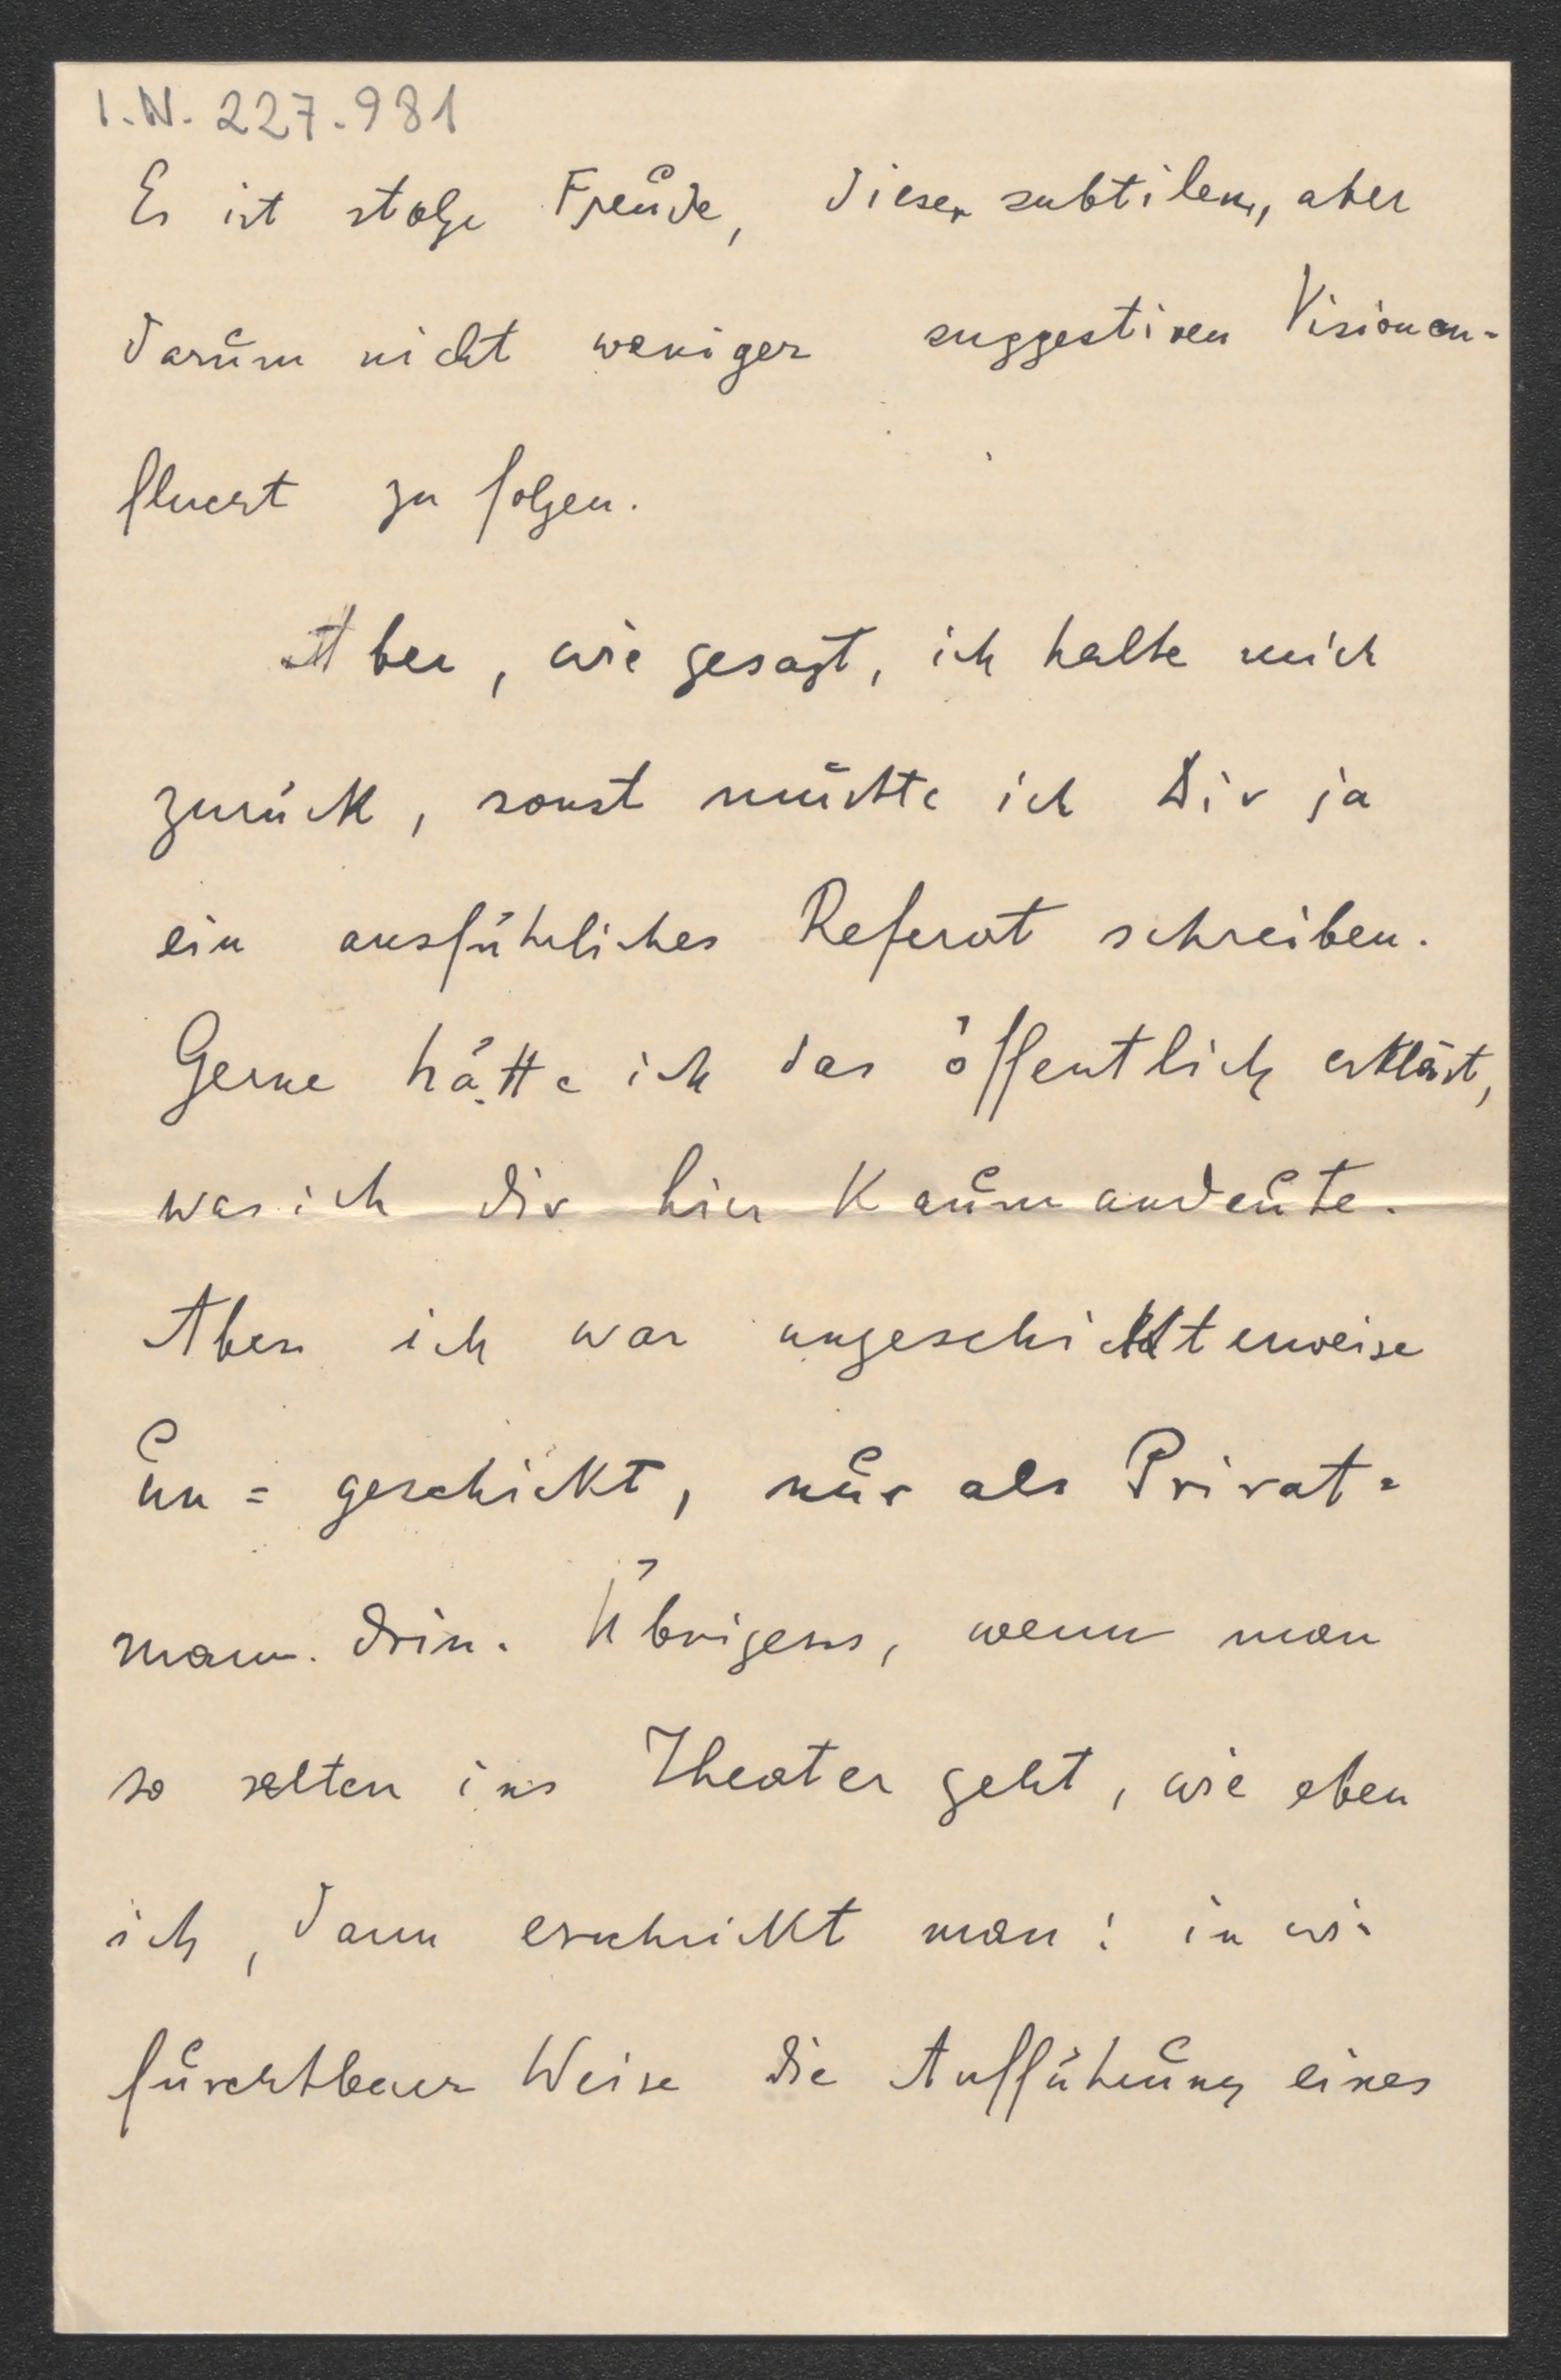 I.N. 227.981
Es ist stolze Freude, dieser subtilen, aber
darum nicht weniger suggestiven Visionen-
flucht zu folgen.
Aber, wie gesagt, ich halte mich
zurück, sonst müsste ich Dir ja
ein ausführliches Referat schreiben.
Gerne hätte ich das öffentlich erklärt,
was ich dir hier kaum andeute.
Aber ich war ungeschickterweise
un= geschickt, nur als Privat=
mann drin. Übrigens, wenn man
so selten ins Theater geht, wie eben
ich, dann erschrickt man: in wie
furchtbarer Weise die Aufführung eines